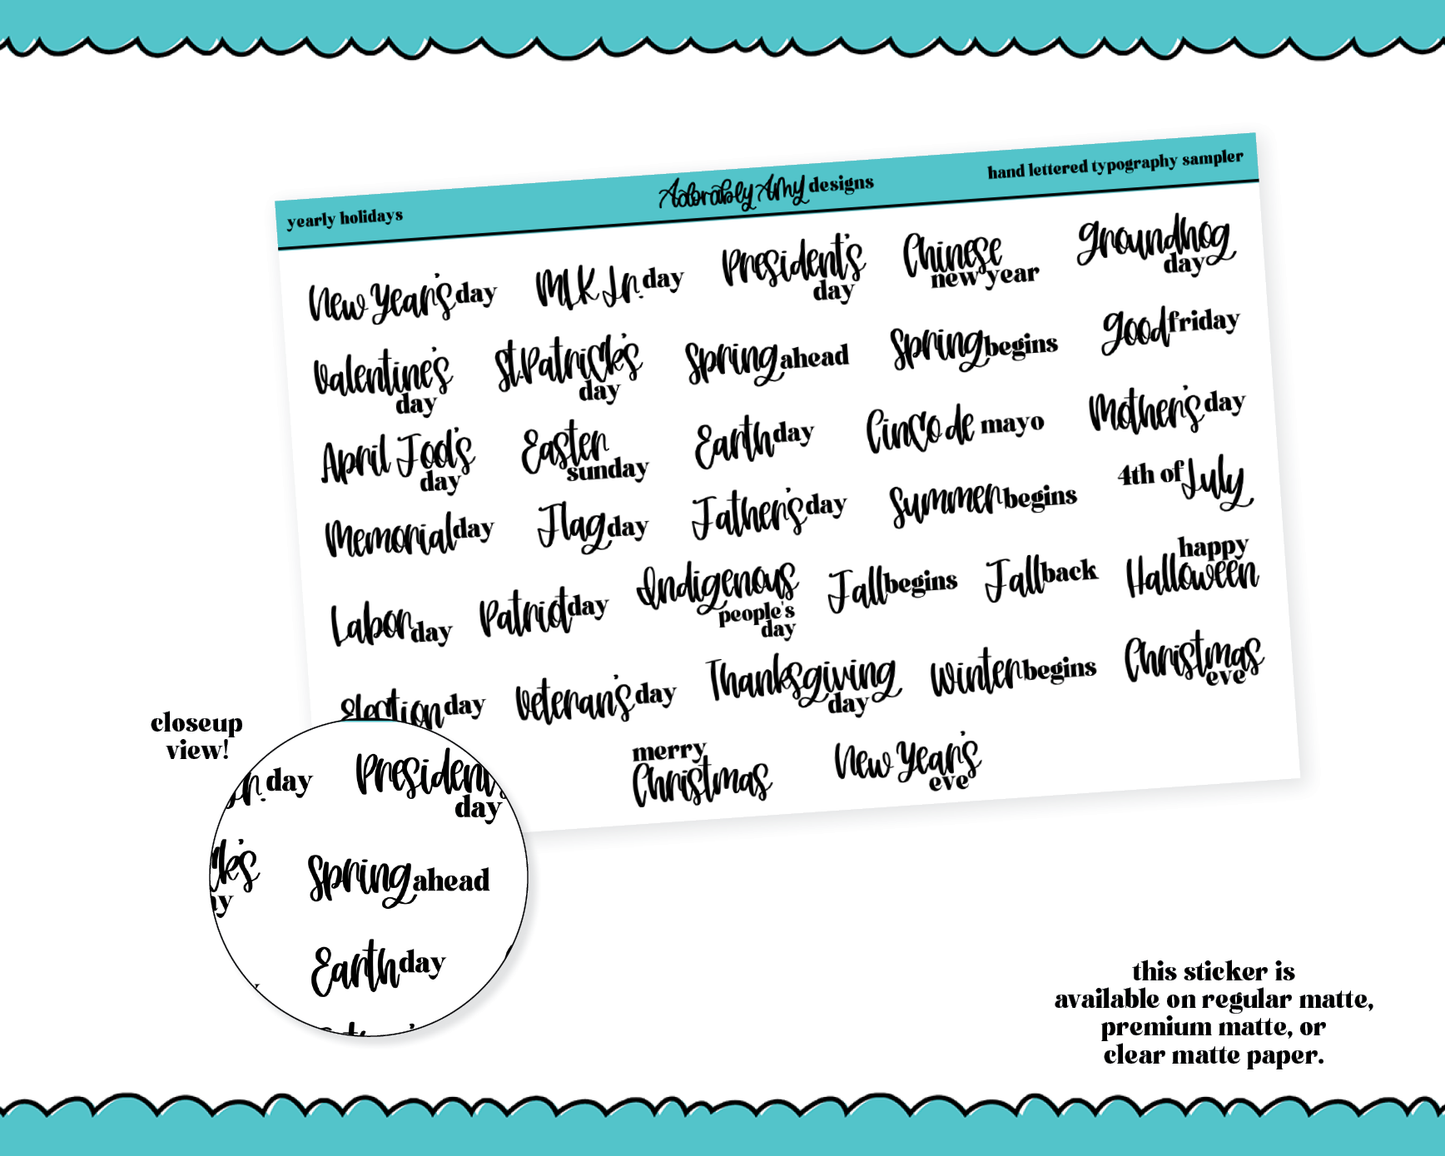 yearly holidays
Adorably Amy designs
hand lettered typography sampler
New Year's day
MLK Jr. day
President's
day
Chinese
new year
Groundhog
day
Valentine's
day
St. Patrick's
day
Spring ahead
Spring begins
Good friday
April Fool's
day
Easter
sunday
Earth day
Cinco de mayo
Mother's day
Memorial day
Flag day
Father's day
Summer begins
4th of July
Labor day
Patriot day
Indigenous
people's
day
Fall begins
Fall back
happy
Halloween
Election day
Veteran's day
Thanksgiving
day
Winter begins
Christmas
eve
merry
Christmas
New Year's
eve
closeup
view!
Jr. day
President's
day
ck's
ay
Spring ahead
Earth day
this sticker is
available on regular matte,
premium matte, or
clear matte paper.